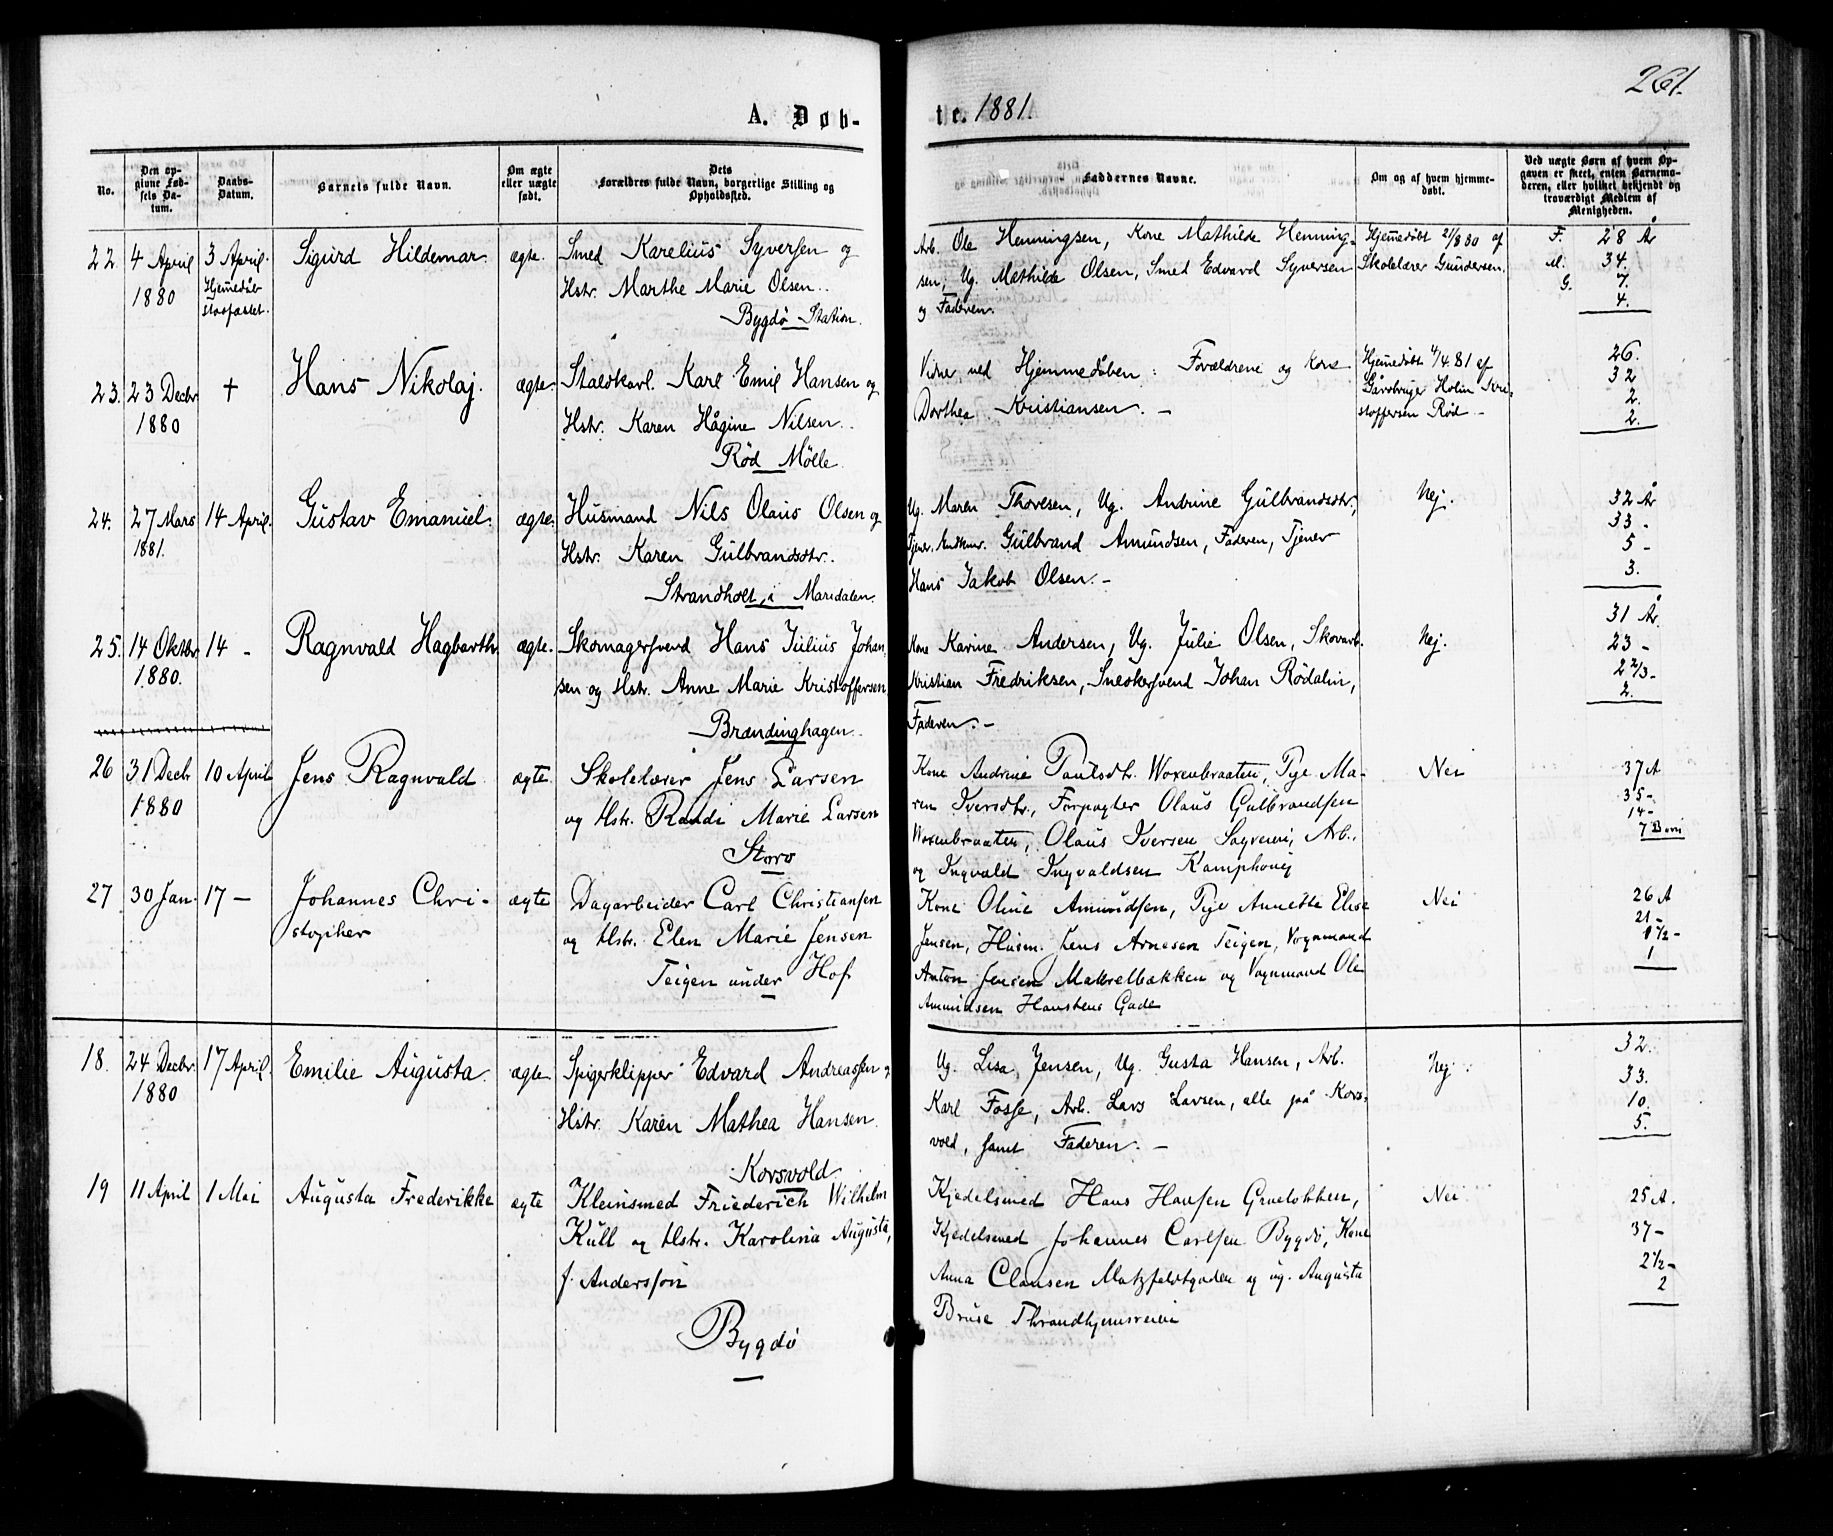 261.
A. Døb-
te. 1881.
No.
Den op-
givne Fød-
sels Da-
tum.
Daabs-
Datum.
Barnets fulde Navn.
Om ægte
eller uægte
født.
Dets
Forældres fulde Navn, borgerlige Stilling og
Opholdssted.
Faddernes Navne.
Om og af hvem hjemme-
døbt.
Ved uægte Børn af hvem Op-
gaven er skeet, enten Barnemo-
deren, eller hvilket bekjendt og
troværdigt Medlem af
Menigheden.
22.
4 April
1880
3 April.
Hjemmedåb
stadfæstet.
Sigurd Hildemar
ægte.
Smed Karelius Syversen og
Hstr. Marthe Marie Olsen.
Bygdø Station.
Arb. Ole Henningsen, Kone Mathilde Henning-
sen, Ug. Mathilde Olsen, Smed Edvard Syversen
og Faderen.
Hjemmedøbt 21/8 80 af
Skolelærer Gundersen.
F. 28 År
M. 34.
G. 7.
4.
23.
23 Decbr
1880
†
Hans Nikolaj.
ægte.
Staldkarl. Karl Emil Hansen og
Hstr. Karen Hågine Nilsen.
Rød Mølle.
Vidner ved Hjemmedåben: Forældrene og Kone
Dorthea Kristiansen. -
Hjemmedøbt 4/4 81 af
Gårdbruger Holm Kri-
stoffersen Rød -
26.
32
2.
2.
24.
27 Mars
1881.
14 April.
Gustav Emanuel.
ægte.
Husmand Nils Olaus Olsen og
Hstr. Karen Gulbrandsdtr.
Strandholt, i Maridalen.
Ug. Maren Thoresen, Ug. Andrine Gulbrandsdtr,
Gulbrand Amundsen, Faderen, Tjener
Hans Jakob Olsen. -
Nej.
32 År
33 -
5 -
3.
25.
14 Oktbr
1880.
14 -
Ragnvald Hagbarth
ægte.
Skomagersvend Hans Julius Johan
sen og Hstr. Anne Marie Kristoffersen
Brændinghagen.
Kone Karine Andersen, Ug. Julie Olsen, Skovarb.
Kristian Fredriksen, Snedkersvend Johan Rødalin,
Faderen. -
Nej.
31 År.
23 -
2 2/3 -
2.
26
31 Decbr
1880
10 April
Jens Ragnvald
ægte
Skolelærer Jens Larsen
og Hstr. Randi Marie Larsen
Storo
Kone Andrine Paulsdtr. Woxenbraaten, Pige Ma-
ren Iversdtr., Forpagter Olaus Gulbrandsen
Woxenbraaten, Olaus Iversen Sagveien, Arb.
og Ingvald Ingvaldsen Kamphoug
Nei
37 A
35 -
14 -
7 Børn
27
30 Jan.
17 -
Johannes Chri-
stopher
ægte
Dagarbeider Carl Christiansen
og Hstr. Elen Marie Jensen
Teigen under Hof.
Kone Oline Amundsen, Pige Annette Elise
Jensen, Husm. Jens Arnesen Teigen, Vognmand
Anton Jensen Makrelbækken og Vognmand Ole
Amundsen Hanstens Gade
Nei
26 A
21 -
1 1/2 -
1
18.
24 Decbr
1880
17 April.
Emilie Augusta.
ægte
Spigerklipper Edvard Andreassen og
Hstr. Karen Mathea Hansen.
Korsvold
Ug. Lisa Jensen, Ug. Gusta Hansen, Arb.
Karl Fosse, Arb. Lars Larsen, alle på Kors-
vold, samt Faderen. -
Nej
32.
33.
10.
5.
19
11 April
1 Mai
Augusta Frederikke
ægte
Kleinsmed Friederich Wilhelm
Kull og Hstr. Karolina Augusta,
f. Andersson
Bygdø
Kjedelsmed Hans Hansen Grueløkken,
Kjedelsmed Johannes Carlsen Bygdø, Kone
Anna Clausen Matzfeldtgaden og ug. Augusta
Bruse Thrandhjemsveien
Nei
25 A.
37 -
2 1/2 -
2